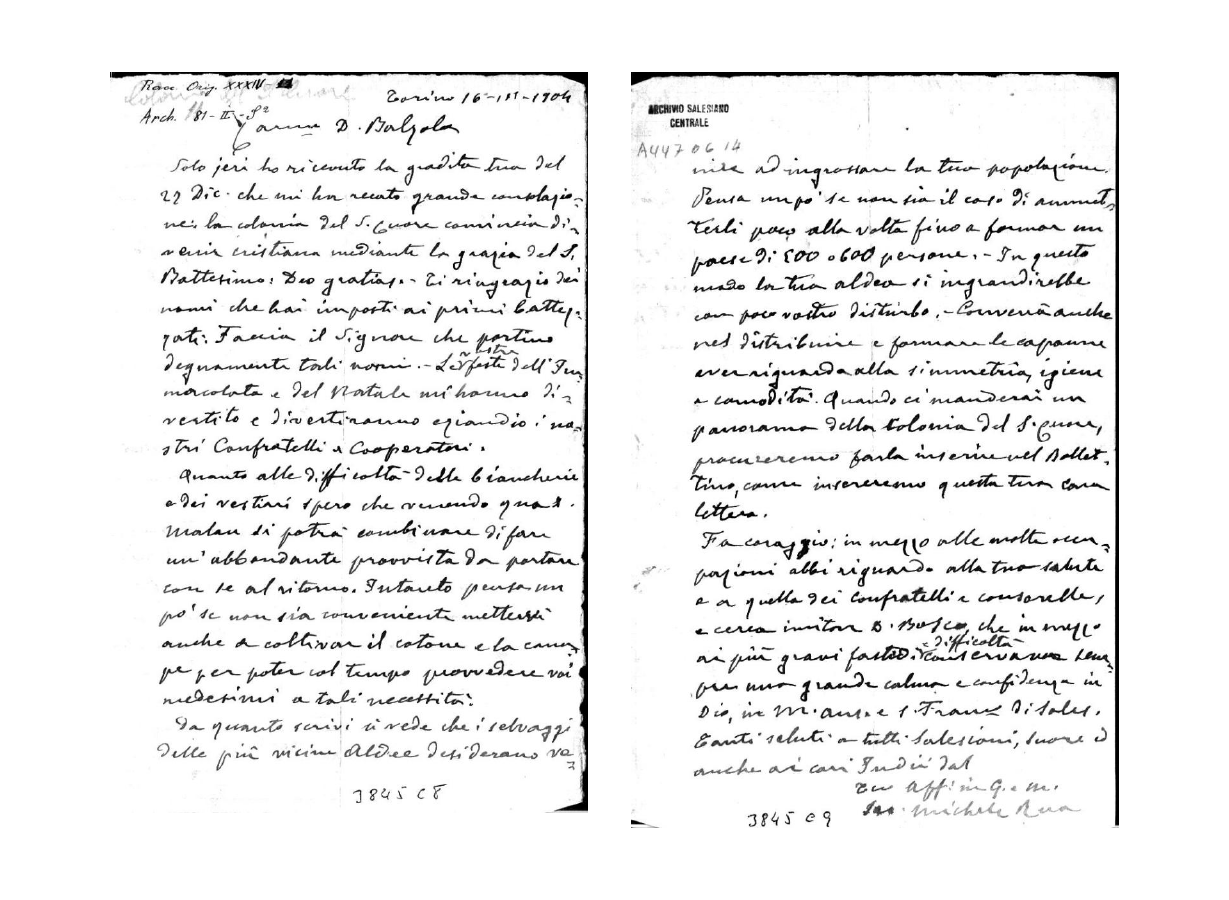 Racc. Orig. XXXIV
Arch. 81-II-S2
Torino 16-III-1904
Carmo D. Balzola
Solo jeri ho ricevuto la gradita tua del
27 Dic. che mi ha recato grande consolazio-
ne: la colonia del S. Cuore comincia di-
venir cristiana mediante la grazia del S.
Battesimo: Deo gratias. - Ti ringrazio dei
nomi che hai imposti ai primi battez-
zati: Faccia il Signore che portino
degnamente tali nomi. - Le vostre feste dell'Im-
macolata e del Natale mi hanno di-
vertito e divertiranno eziandio i no-
stri Confratelli e Cooperatori.
Quanto alle difficoltà delle biancherie
e dei vestiari spero che venendo qua D.
Malan si potrà combinare di fare
un'abbondante provvista da portare
con se al ritorno. Intanto pensa un
po' se non sia conveniente mettersi
anche a coltivar il cotone e la cana-
pe per poter col tempo provvedere voi
medesimi a tali necessità.
Da quanto scrivi si vede che i selvaggi
delle più vicine Aldee desiderano ve-
3845 C8
ARCHIVIO SALESIANO
CENTRALE
A4470614
nire ad ingrossare la tua popolazione.
Pensa un po' se non sia il caso di ammet-
terli poco alla volta fino a formar un
paese di 500 o 600 persone. - In questo
modo la tua aldea si ingrandirebbe
con poco vostro disturbo. - Converrà anche
nel distribuire e formare le capanne
aver riguardo alla simmetria, igiene
e comodità. Quando ci manderai un
panorama della Colonia del S. Cuore,
procureremo farla inserire nel Bollet-
tino, come inseriremo questa tua cara
lettera.
Fa coraggio: in mezzo alle molte occu-
pazioni abbi riguardo alla tua salute
e a quella dei Confratelli e consorelle,
e cerca imitar D. Bosco, che in mezzo
ai più gravi fastidi e difficoltà conservava sem-
pre una grande calma e confidenza in
Dio, in M. Aus. e S. Franc di Sales.
Tanti saluti a tutti Salesiani, Suore ed
anche ai cari Indii dal
Tuo Aff. in G. e M.
Sac. Michele Rua
3845 C9